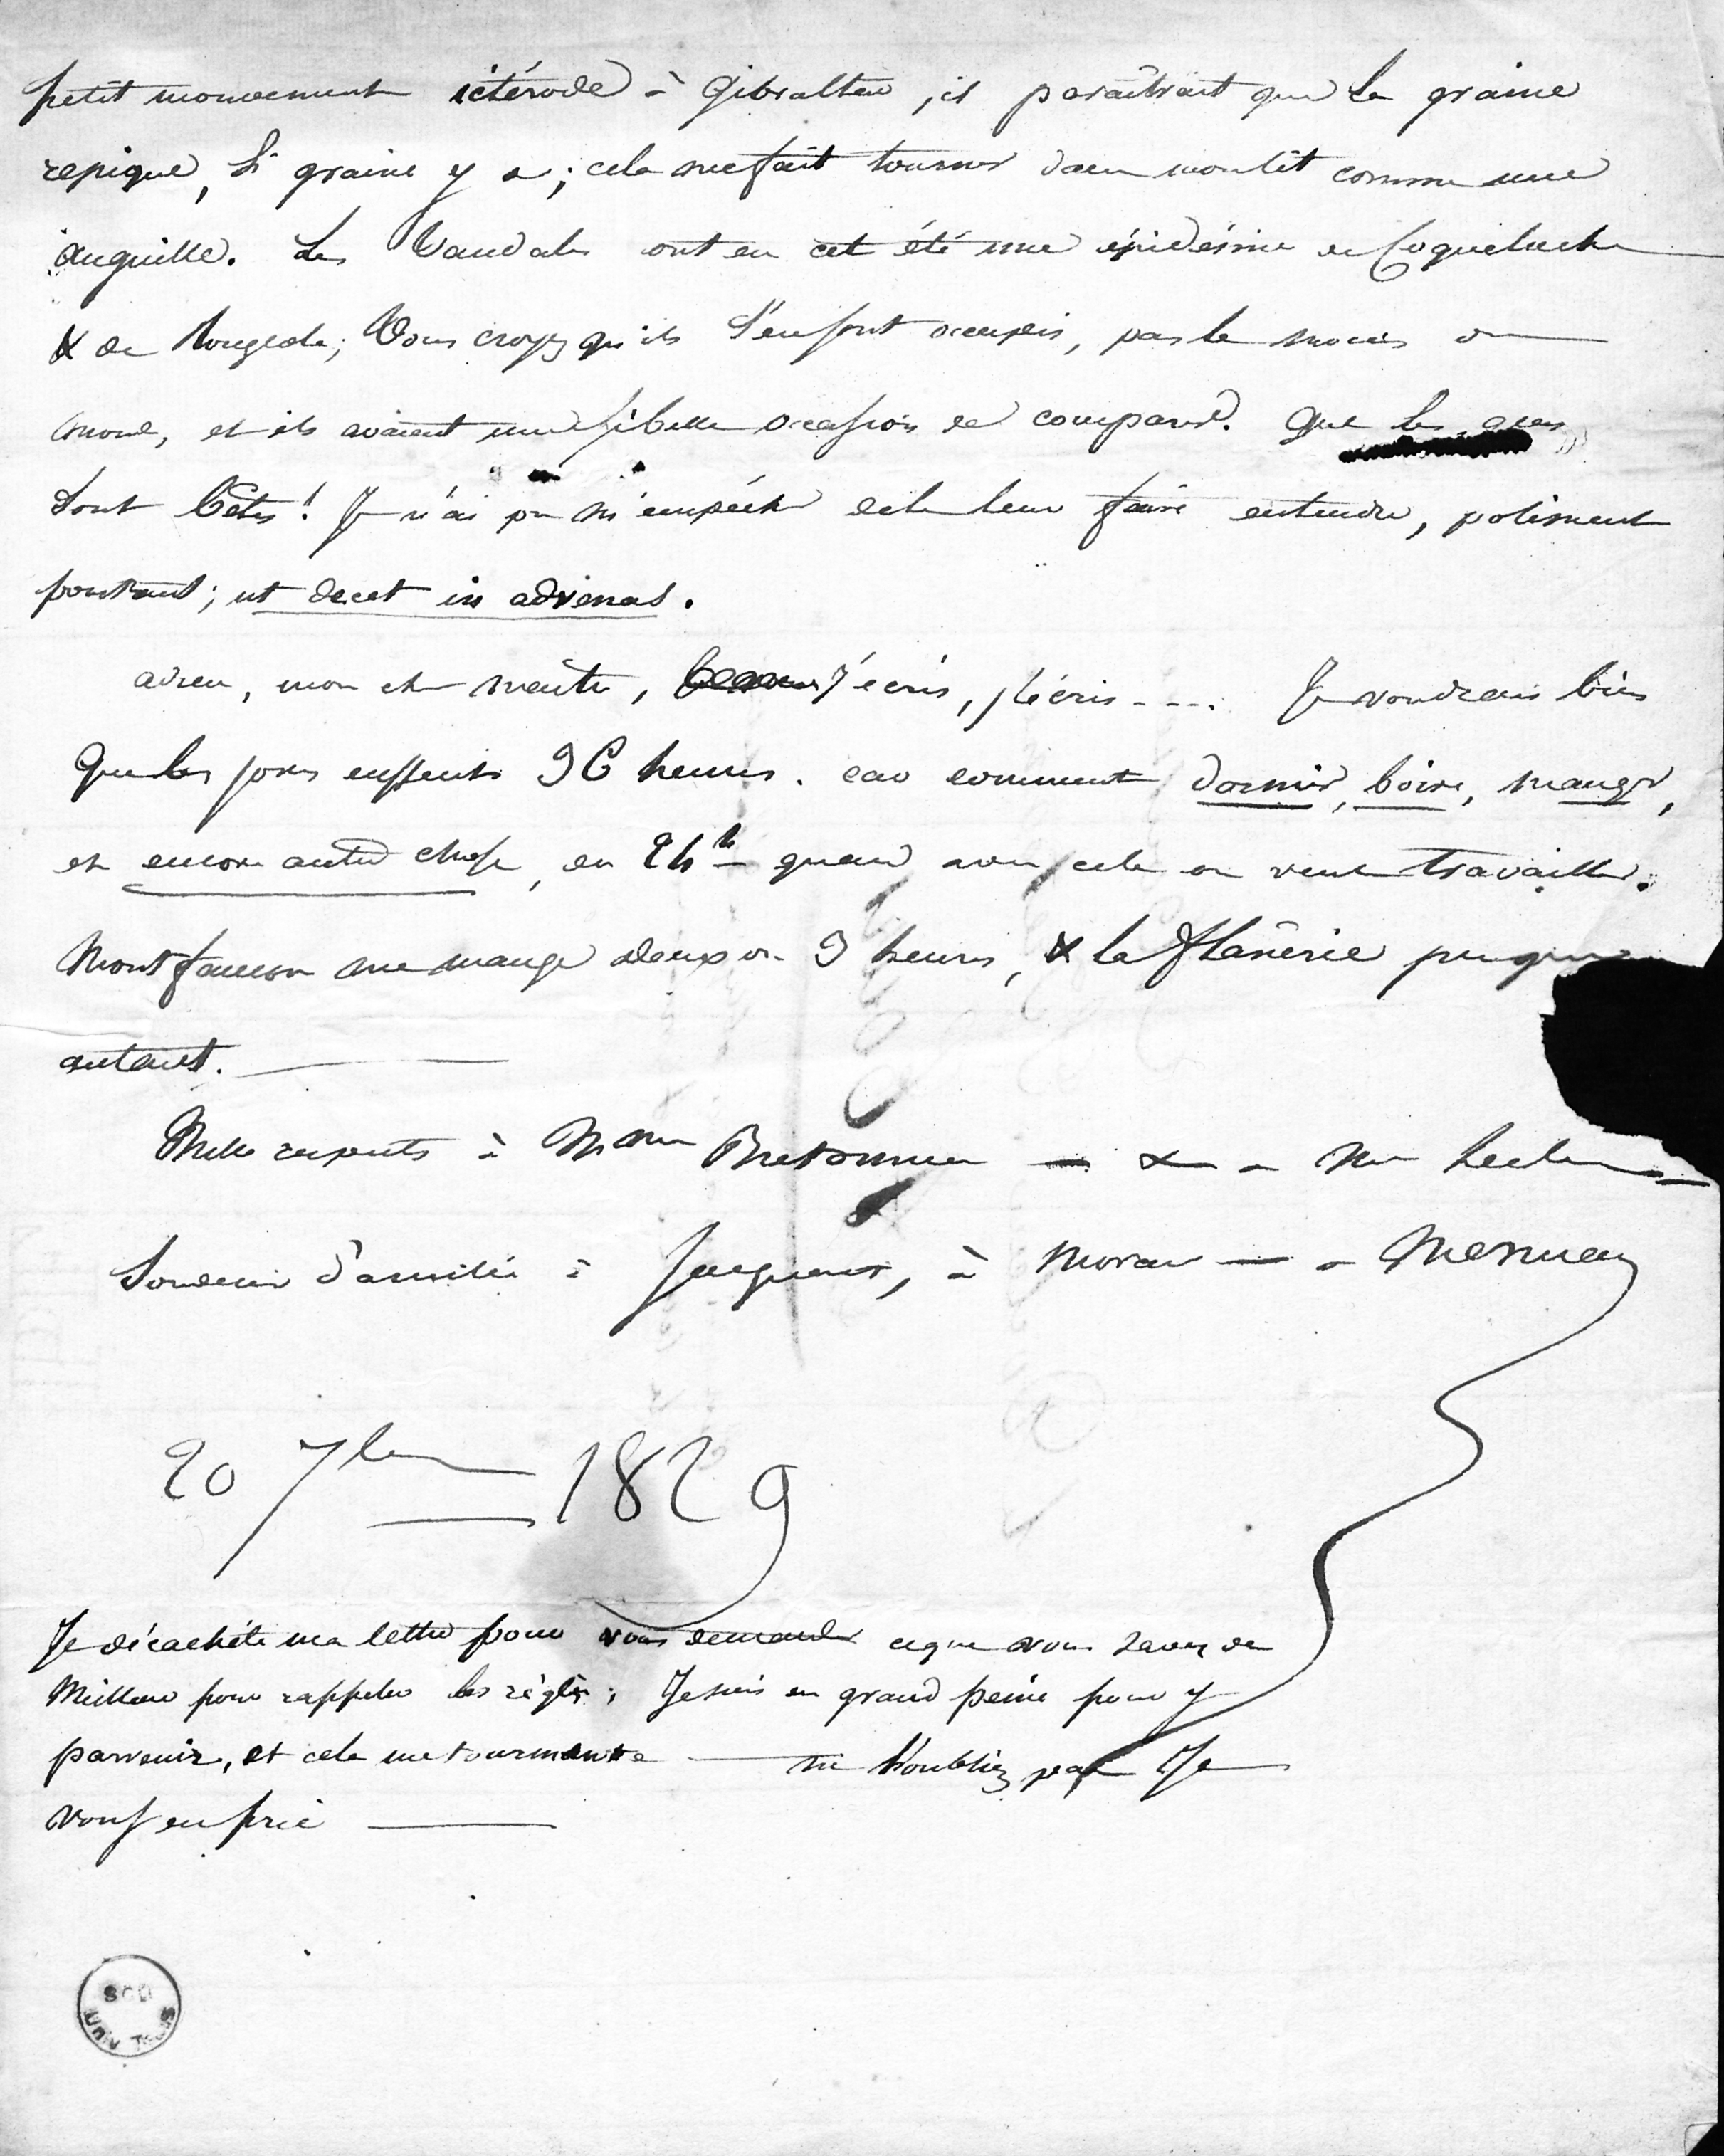 petit mouvement ictérode à Gibraltar, il paraîtrait que la graine
repique, si graine y a; cela me fait tourner dans mon lit comme une
anguille. Les Vandales ont eu cet été une épidémie de Coqueluche
& de Rougeole; Vous croyez qu'ils s'en sont occupés, pas le moins du
monde, et ils avaient une si belle occasion de comparer. Que les gens
sont bêtes! Je n'ai pu m'empêcher de le leur faire entendre, poliment
pourtant; ut decet in advenas.
adieu, mon cher maître, j'écris, j'écris .... Je voudrais bien
que les jours eussent 36 heures. car comment dormir, boire, manger,
et encore autre chose, en 24h quand avec cela on veut travailler.
Montfaucon me mange deux ou 3 heures, & la flânerie presque
autant.
Mille respects à Mme Bretonneau — & à
Souvenir d'amitié à Jacquart, à Moreau — à Mesnau
20 7bre 1829
Je décachète ma lettre pour vous demander ce que vous savez de
Meilleur pour rappeler les règles; Je suis en grand peine pour y
parvenir, et cela me tourmente — ne l'oubliez pas Je
vous en prie —
SCD
Univ Tours